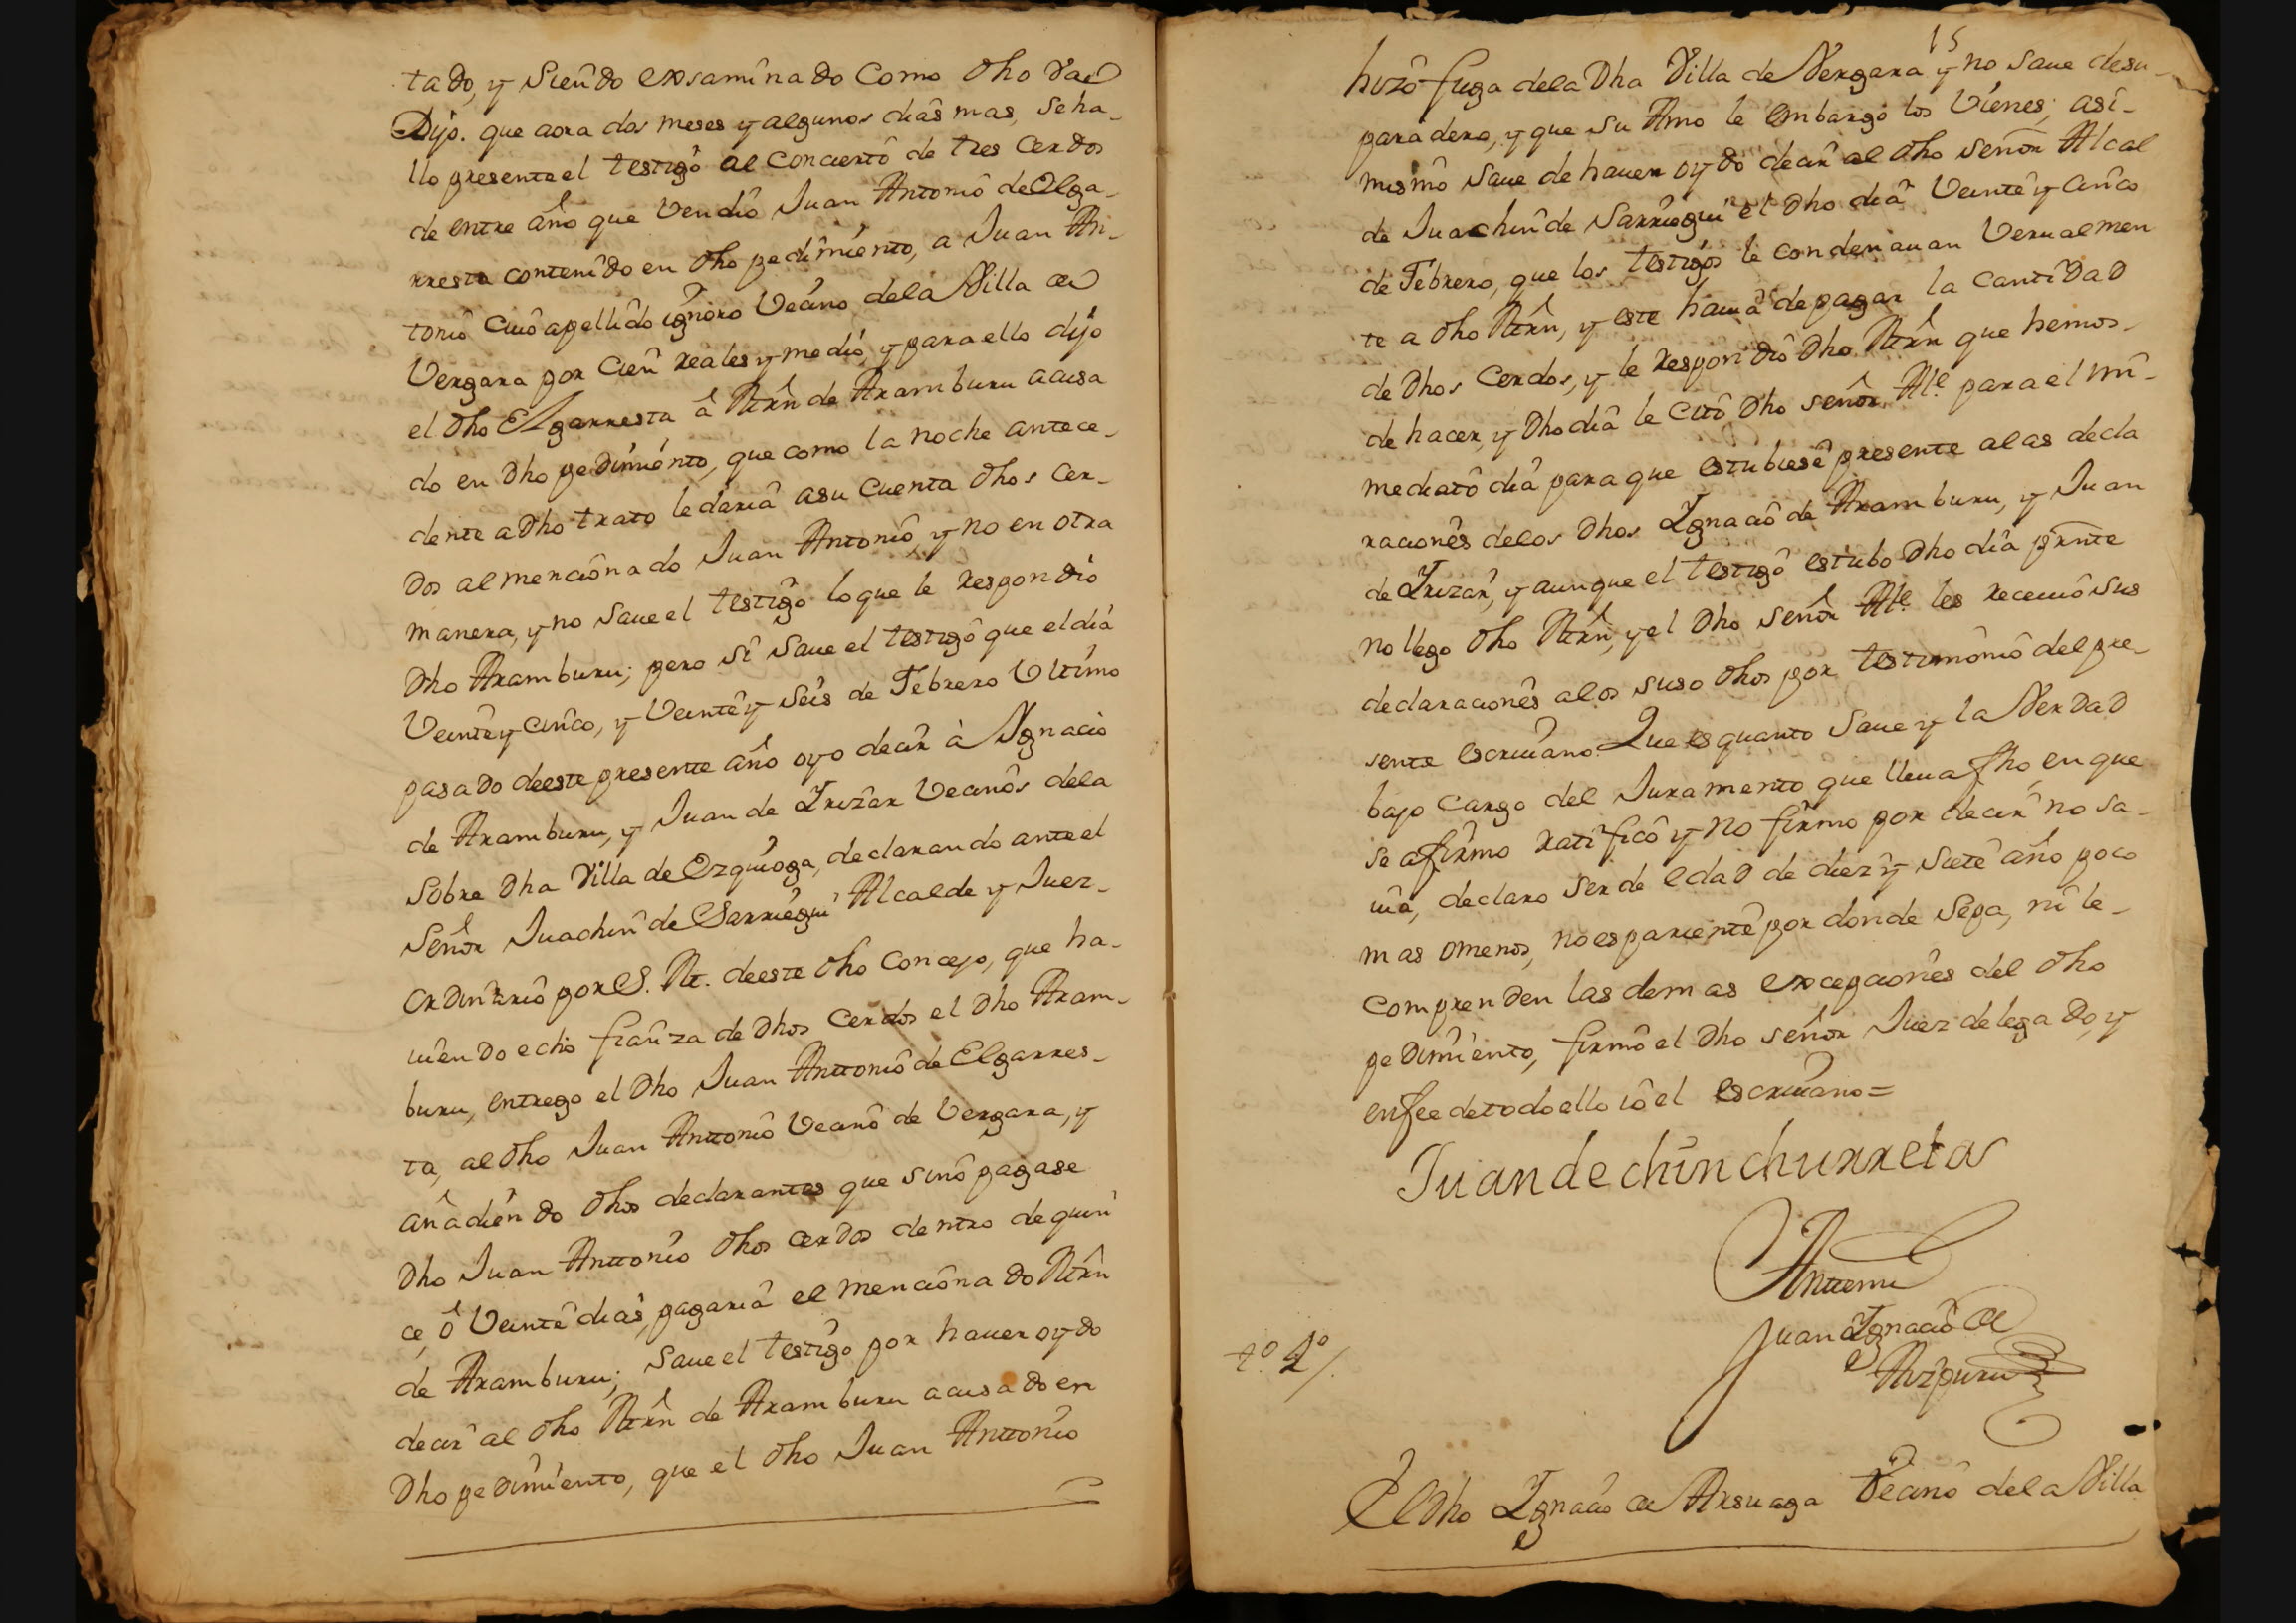 tado, y Siendo exsaminado Como dho va
Dijo. que aora dos meses y algunos dias mas, se ha-
llo presente el testigo al Concierto de tres Cerdos
de entre año que Vendio Juan Antonio de Elga-
rresta contenido en dho pedimiento, a Juan An-
tonio cuio apellido ignora Vecino dela Villa de
Vergara por Cien Reales y medio, y para ello dijo
el dho Elgarresta â Mrn de Aramburu acusa
do en Dho pedimiento, que como la noche antece-
dente a Dho trato ledaria asu Cuenta dhos Cer-
dos al mencionado Juan Antonio, y no en otra
manera, y no Saue el testigo loque le Respondio
Dho Aramburu; pero si Saue el testigo que el dia
Veinte y Cinco, y Veinte y Seis de Febrero Ultimo
pasado deeste presente año oyo decir à Ygnacio
de Aramburu, y Juan de Irizar Vecinos dela
Sobre Dha Villa de Ezquioga, declarando ante el
Señor Juachin de Sarriegui Alcalde y Juez-
Ordinario por S. M. deeste dho Concejo, que ha-
uiendo echo fianza de Dhos Cerdos el Dho Aram-
buru, entrego el Dho Juan Anttonio de Elgarres-
ta, al dho Juan Anttonio Vecino de Vergara, y
añadiendo dhos declarantes que sino pagase
Dho Juan Anttonio dhos Cerdos dentro de quin
ce, ô Veinte dias, pagaria el mencionado Mrn
de Aramburu; Saue el testigo por hauer oydo
decir al dho Mrn de Aramburu acusado en
Dho pedimiento, que el dho Juan Anttonio
15
hizo fuga dela Dha Villa de Vergara y no Saue desu-
paradero, y que Su Amo le embargo los Vienes; asi-
mismo Saue de hauer oydo decir al dho señor Alcal
de Juachin de Sarriegui el dho dia Veinte y Cinco
de Febrero, que los testigos le condenauan Verualmen
te a dho Mrn, y este hauia de pagar la Cantidad
de Dhos Cerdos, y le Respondio Dho Mrn que hemos-
de hacer, y Dho dia le Cito Dho señor Alle. para el ini-
mediato dia para que estubiese presente alas decla
raciones delos Dhos Ignacio de Aramburu, y Juan
de Irizar, y aunque el testigo estubo Dho dia prnte
no llego Dho Mrn, y el Dho Señor Alle. les Receuio sus
declaraciones alos suso dhos por testimonio del pre-
sente escriuano Que es quanto Saue y la Verdad
bajo Cargo del Juramento que lleua fho, en que
se afirmo ratifico y no firmo por decir no sa-
uia, declaro Ser de edad de diez y Siete año poco
mas omenos, no es pariente por donde Sepa, ni le-
comprenden las demas excepciones del dho
pedimiento, firmo el Dho señor Juez delegado, y
enfee detodoello io el escriuano=
Juan de chinchurreta
Anttemi
Juan Ignacio de
Aizpuru
to. 2o/.
El dho Ignacio de Arsuaga Vecino dela Villa